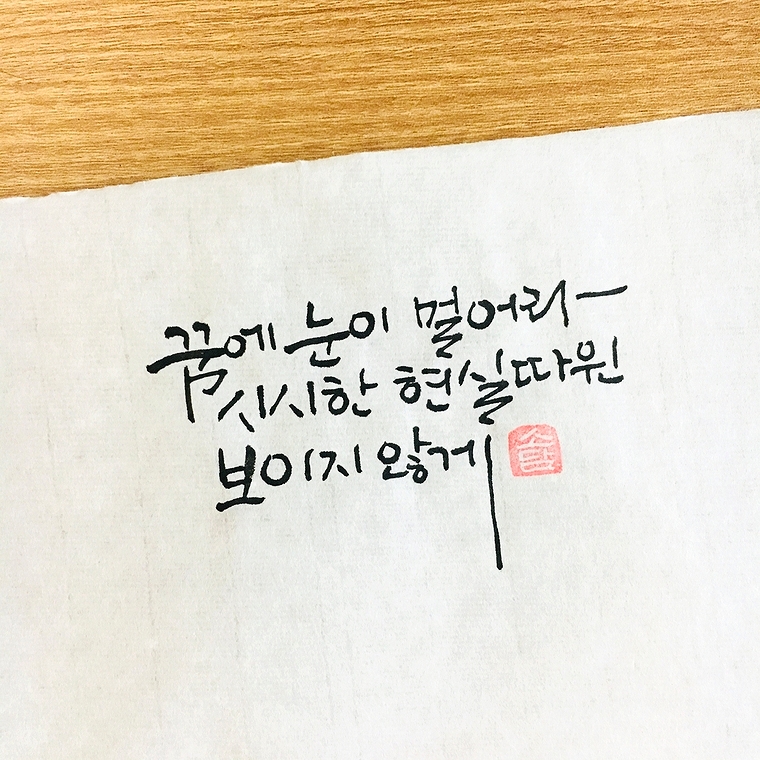 꿈에 눈이 멀어라
시시한 현실따윈
보이지 않게
솝